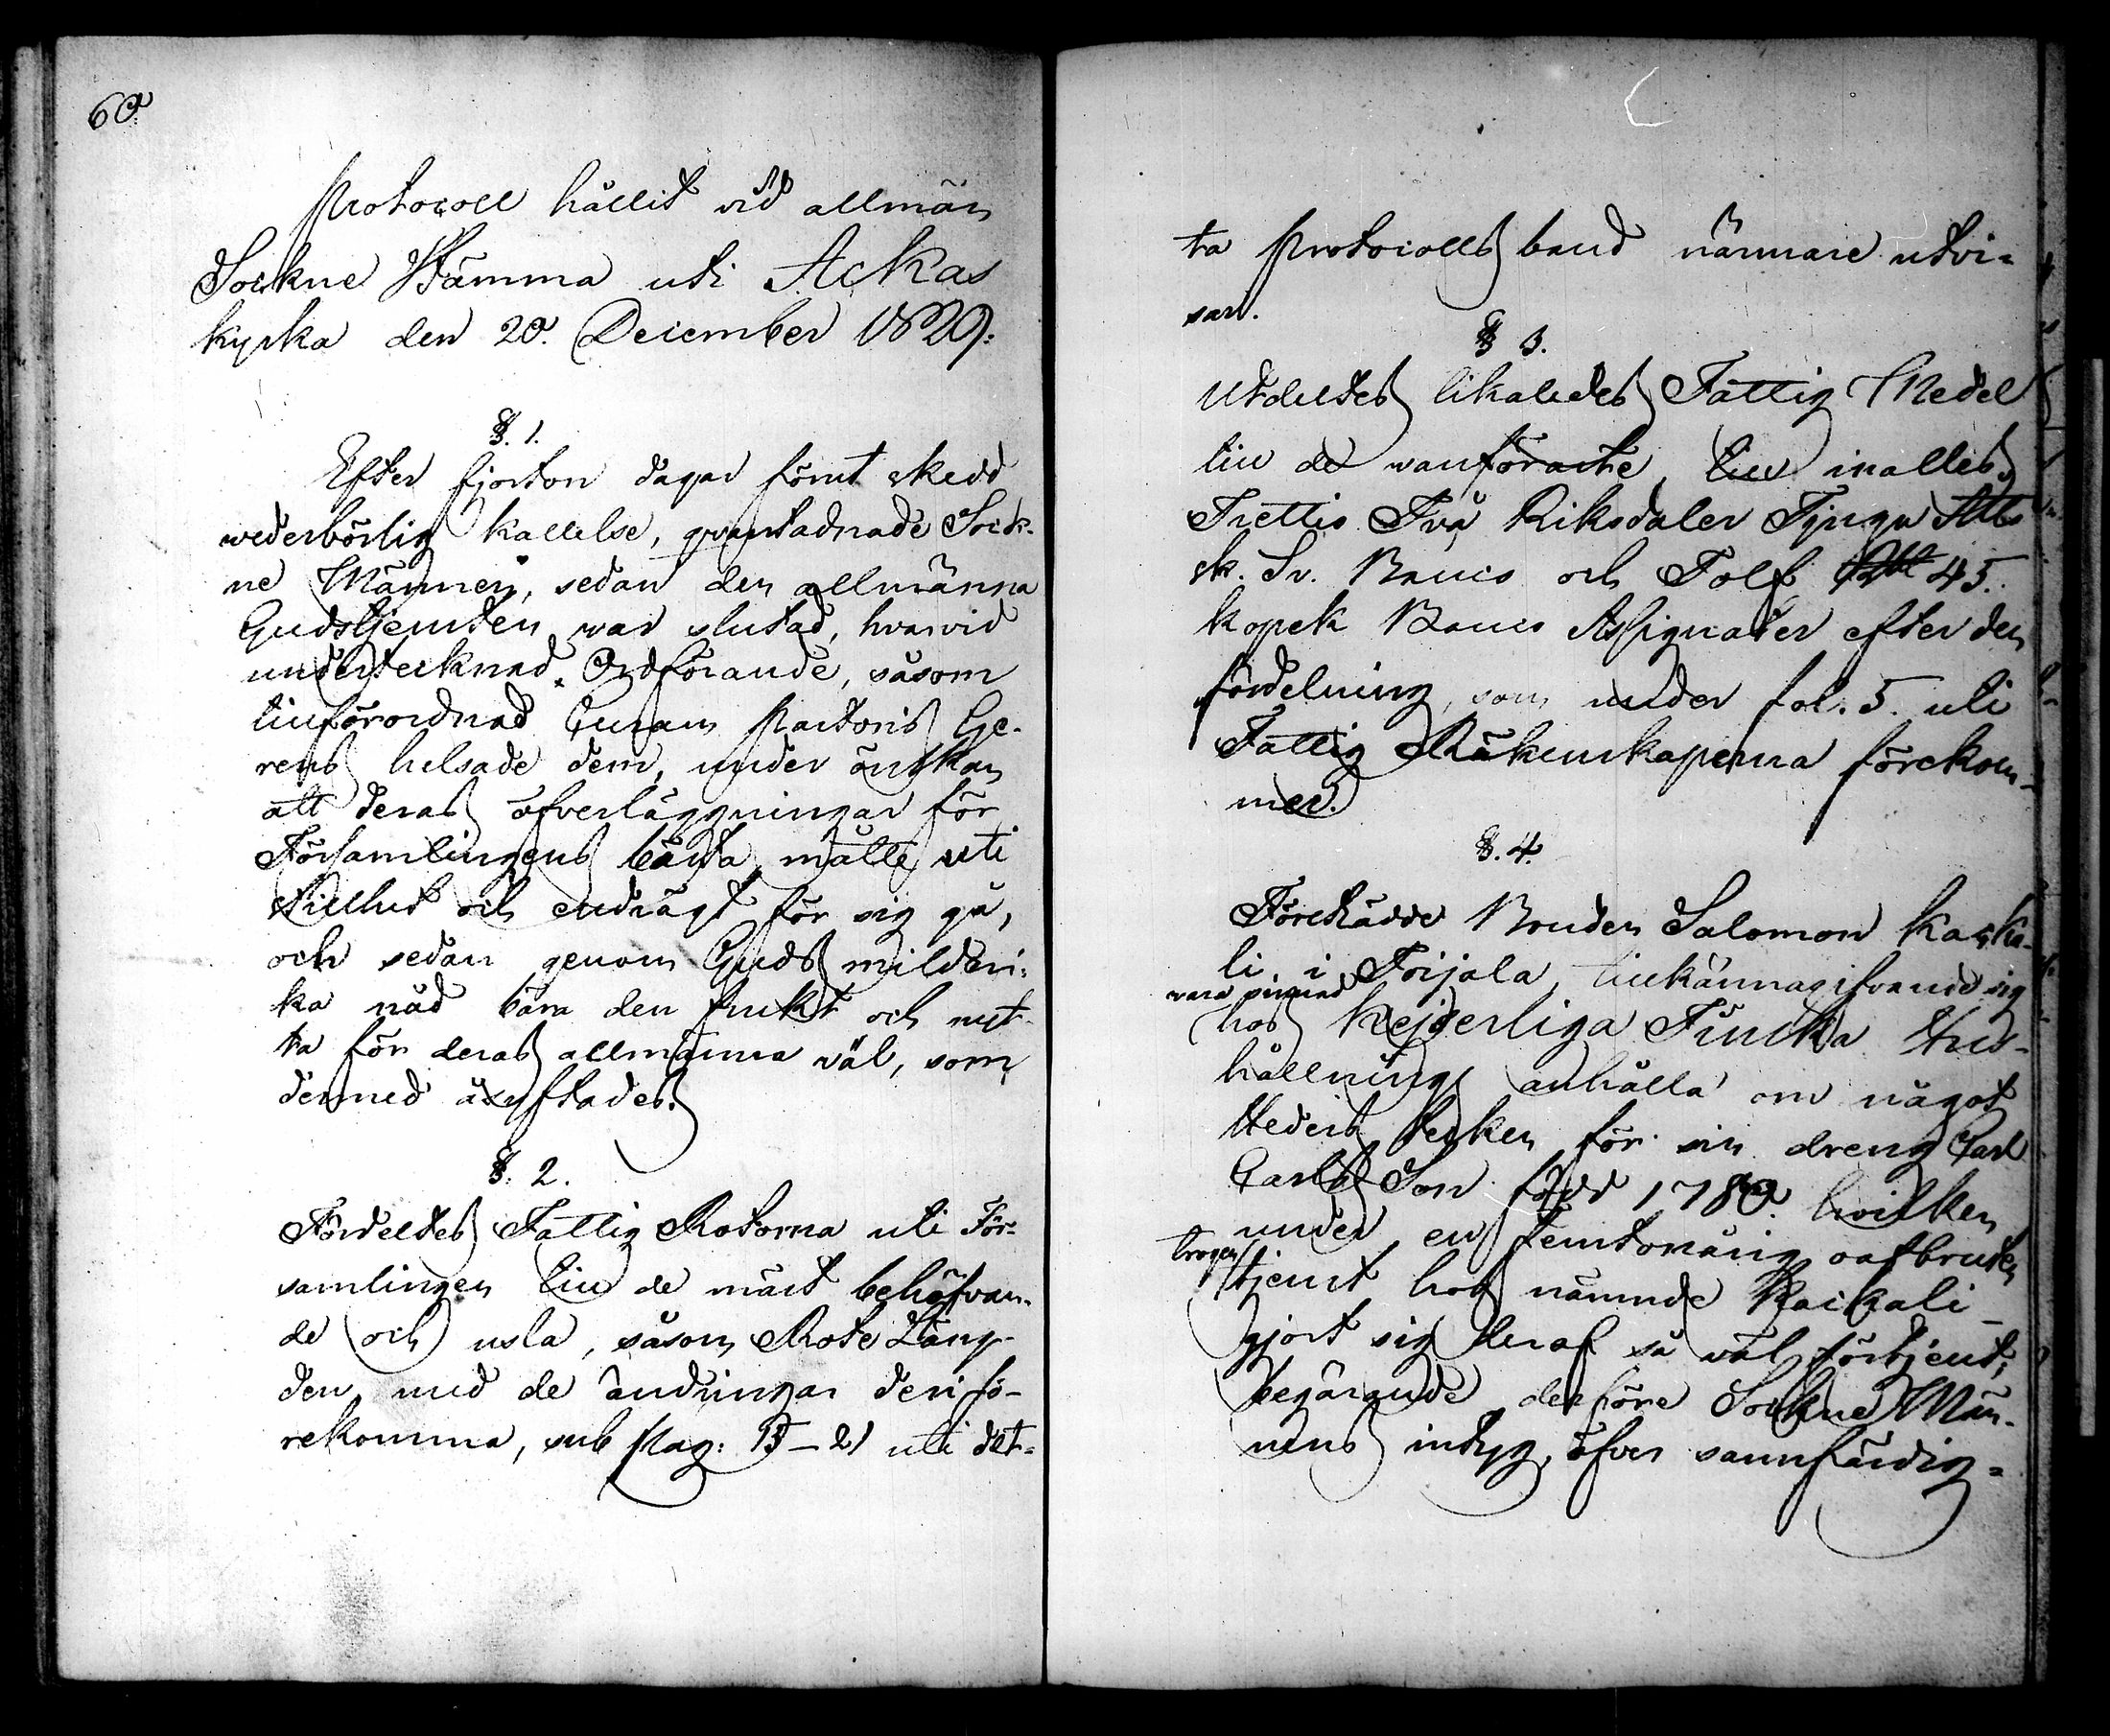 60
Protocoll hållit vid allmän
Sockne Stämma uti Ackas
kyrka den 20. December 1829:
§. 1.
Efter fjorton dagar förut skedd
wederbörlig kallelse, qvarstadnade Sock-
ne Männen, sedan den allmänna
Gudstjensten war slutad, hvarvid
undertecknad Ordförande, såsom
tillförordnad Curam Pastoris Ge-
rens helsade dem, under önskan
att deras öfverläggningar för
Församlingens bästa måtte uti
stillhet och endrägt för sig gå,
och sedan genom Guds mildri-
ka nåd bära den frukt och nyt-
ta för deras allmänna väl, som
dermed åsyftades.
§. 2.
Fördeltes Fattig Rotorna uti För-
samlingen till de mäst behöfvan-
de och usla, såsom Rote Läng-
den med de ändringar deri fö-
rekomma, sub Pag: 15-21 uti det-
ta Protocolls band närmare utvi-
sar.
§ 3.
Utdeltes likaledes Fattig Medel
till de wanförache, till inalles
Trettio Två Riksdaler Tjugu
sk. Sv. Banco och Tolf 45.
kopek Banco Assignater efter den
fördelning, som under fol. 5. uti
Fattig Räkenskaperna förekom-
mer.
§. 4.
Företrädde Bonden Salomon Kaska-
li i Toijala, tillkännagifvande sig
vara sinnad
hos Kejserliga Finska Hus-
hållnings anhålla om något
Heders tecken för sin dreng Carl
Carls Son född 1780. hvilken
under en femtonårig oafbruten
trogen
tjenst hos nämnde Kaskali
gjort sig deraf så väl förtjent;
begärande derföre Sockne Män-
nens intyg, öfver sannfärdig-